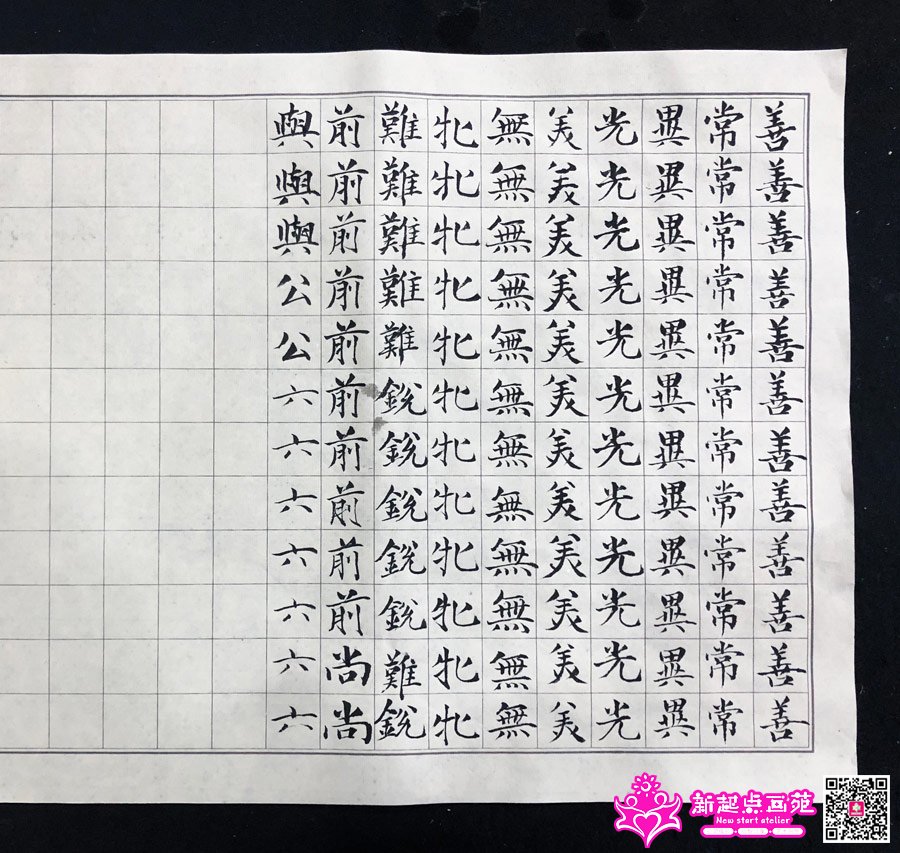 善善善善善善善善善善善善
常常常常常常常常常常常常
異異異異異異異異異異異異
光光光光光光光光光光光光
美美美美美美美美美美美美
無無無無無無無無無無無無
牝牝牝牝牝牝牝牝牝牝牝牝
難難難難難銳銳銳銳銳難銳
前前前前前前前前前前尚尚
與與與公公六六六六六六六
新起点画苑
New start atelier